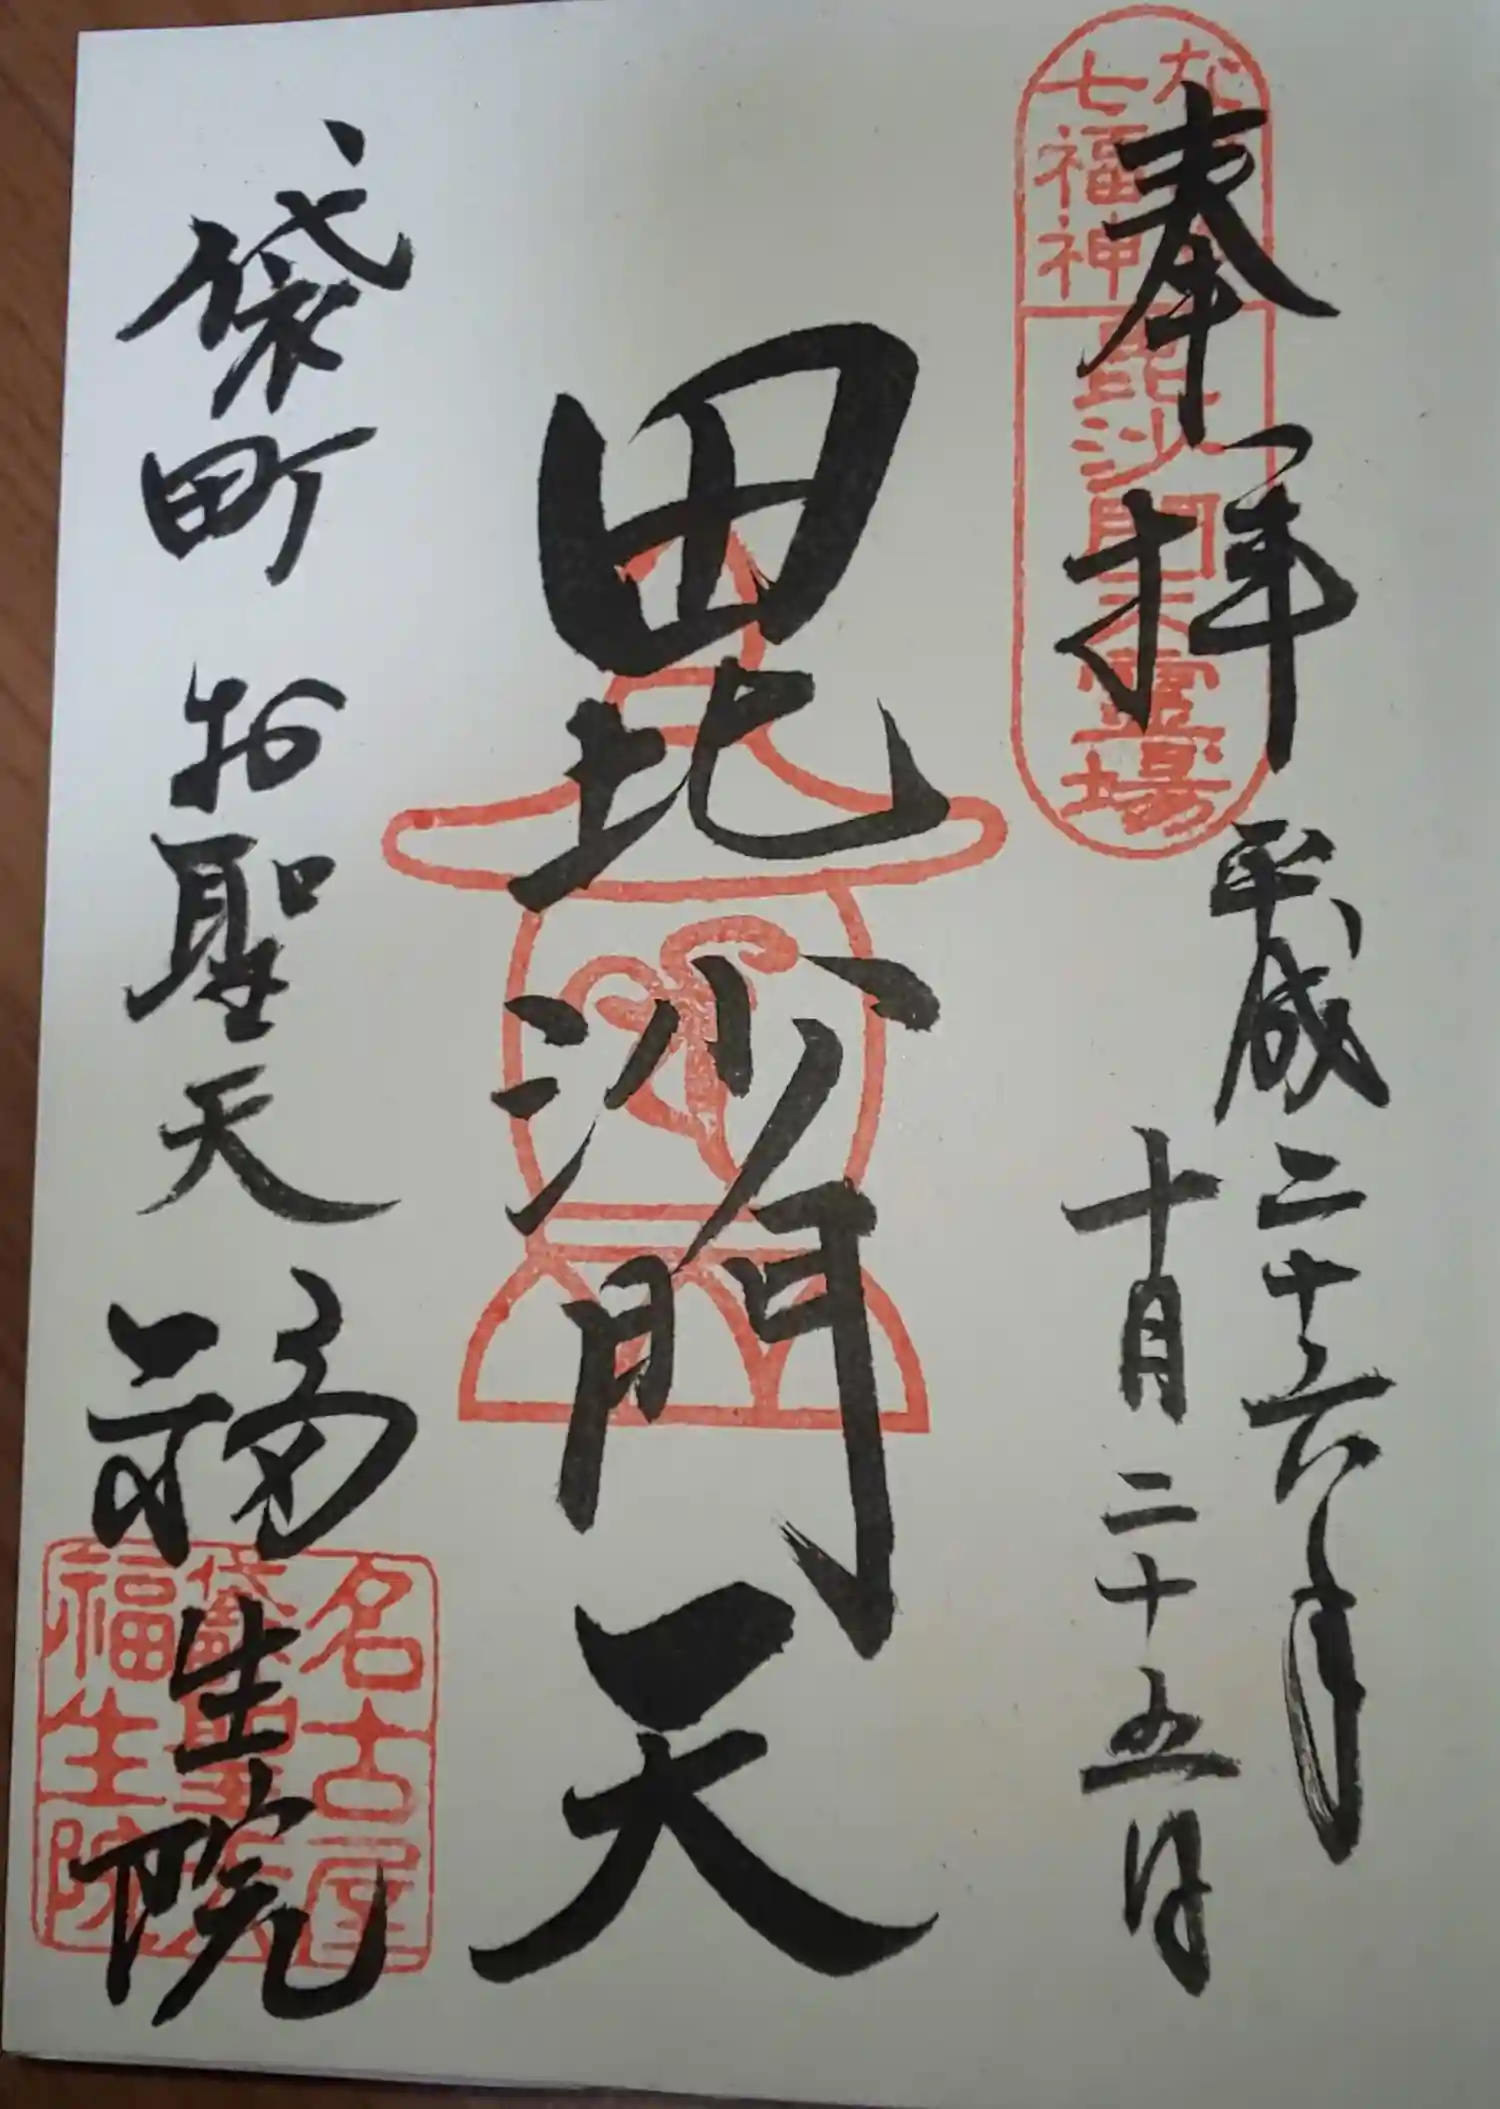 奉拝
平成二十六年
十月二十五日
毘沙門天
袋町 お聖天 福生院
七福神
毘沙門天霊場
名古屋
袋町聖天
福生院